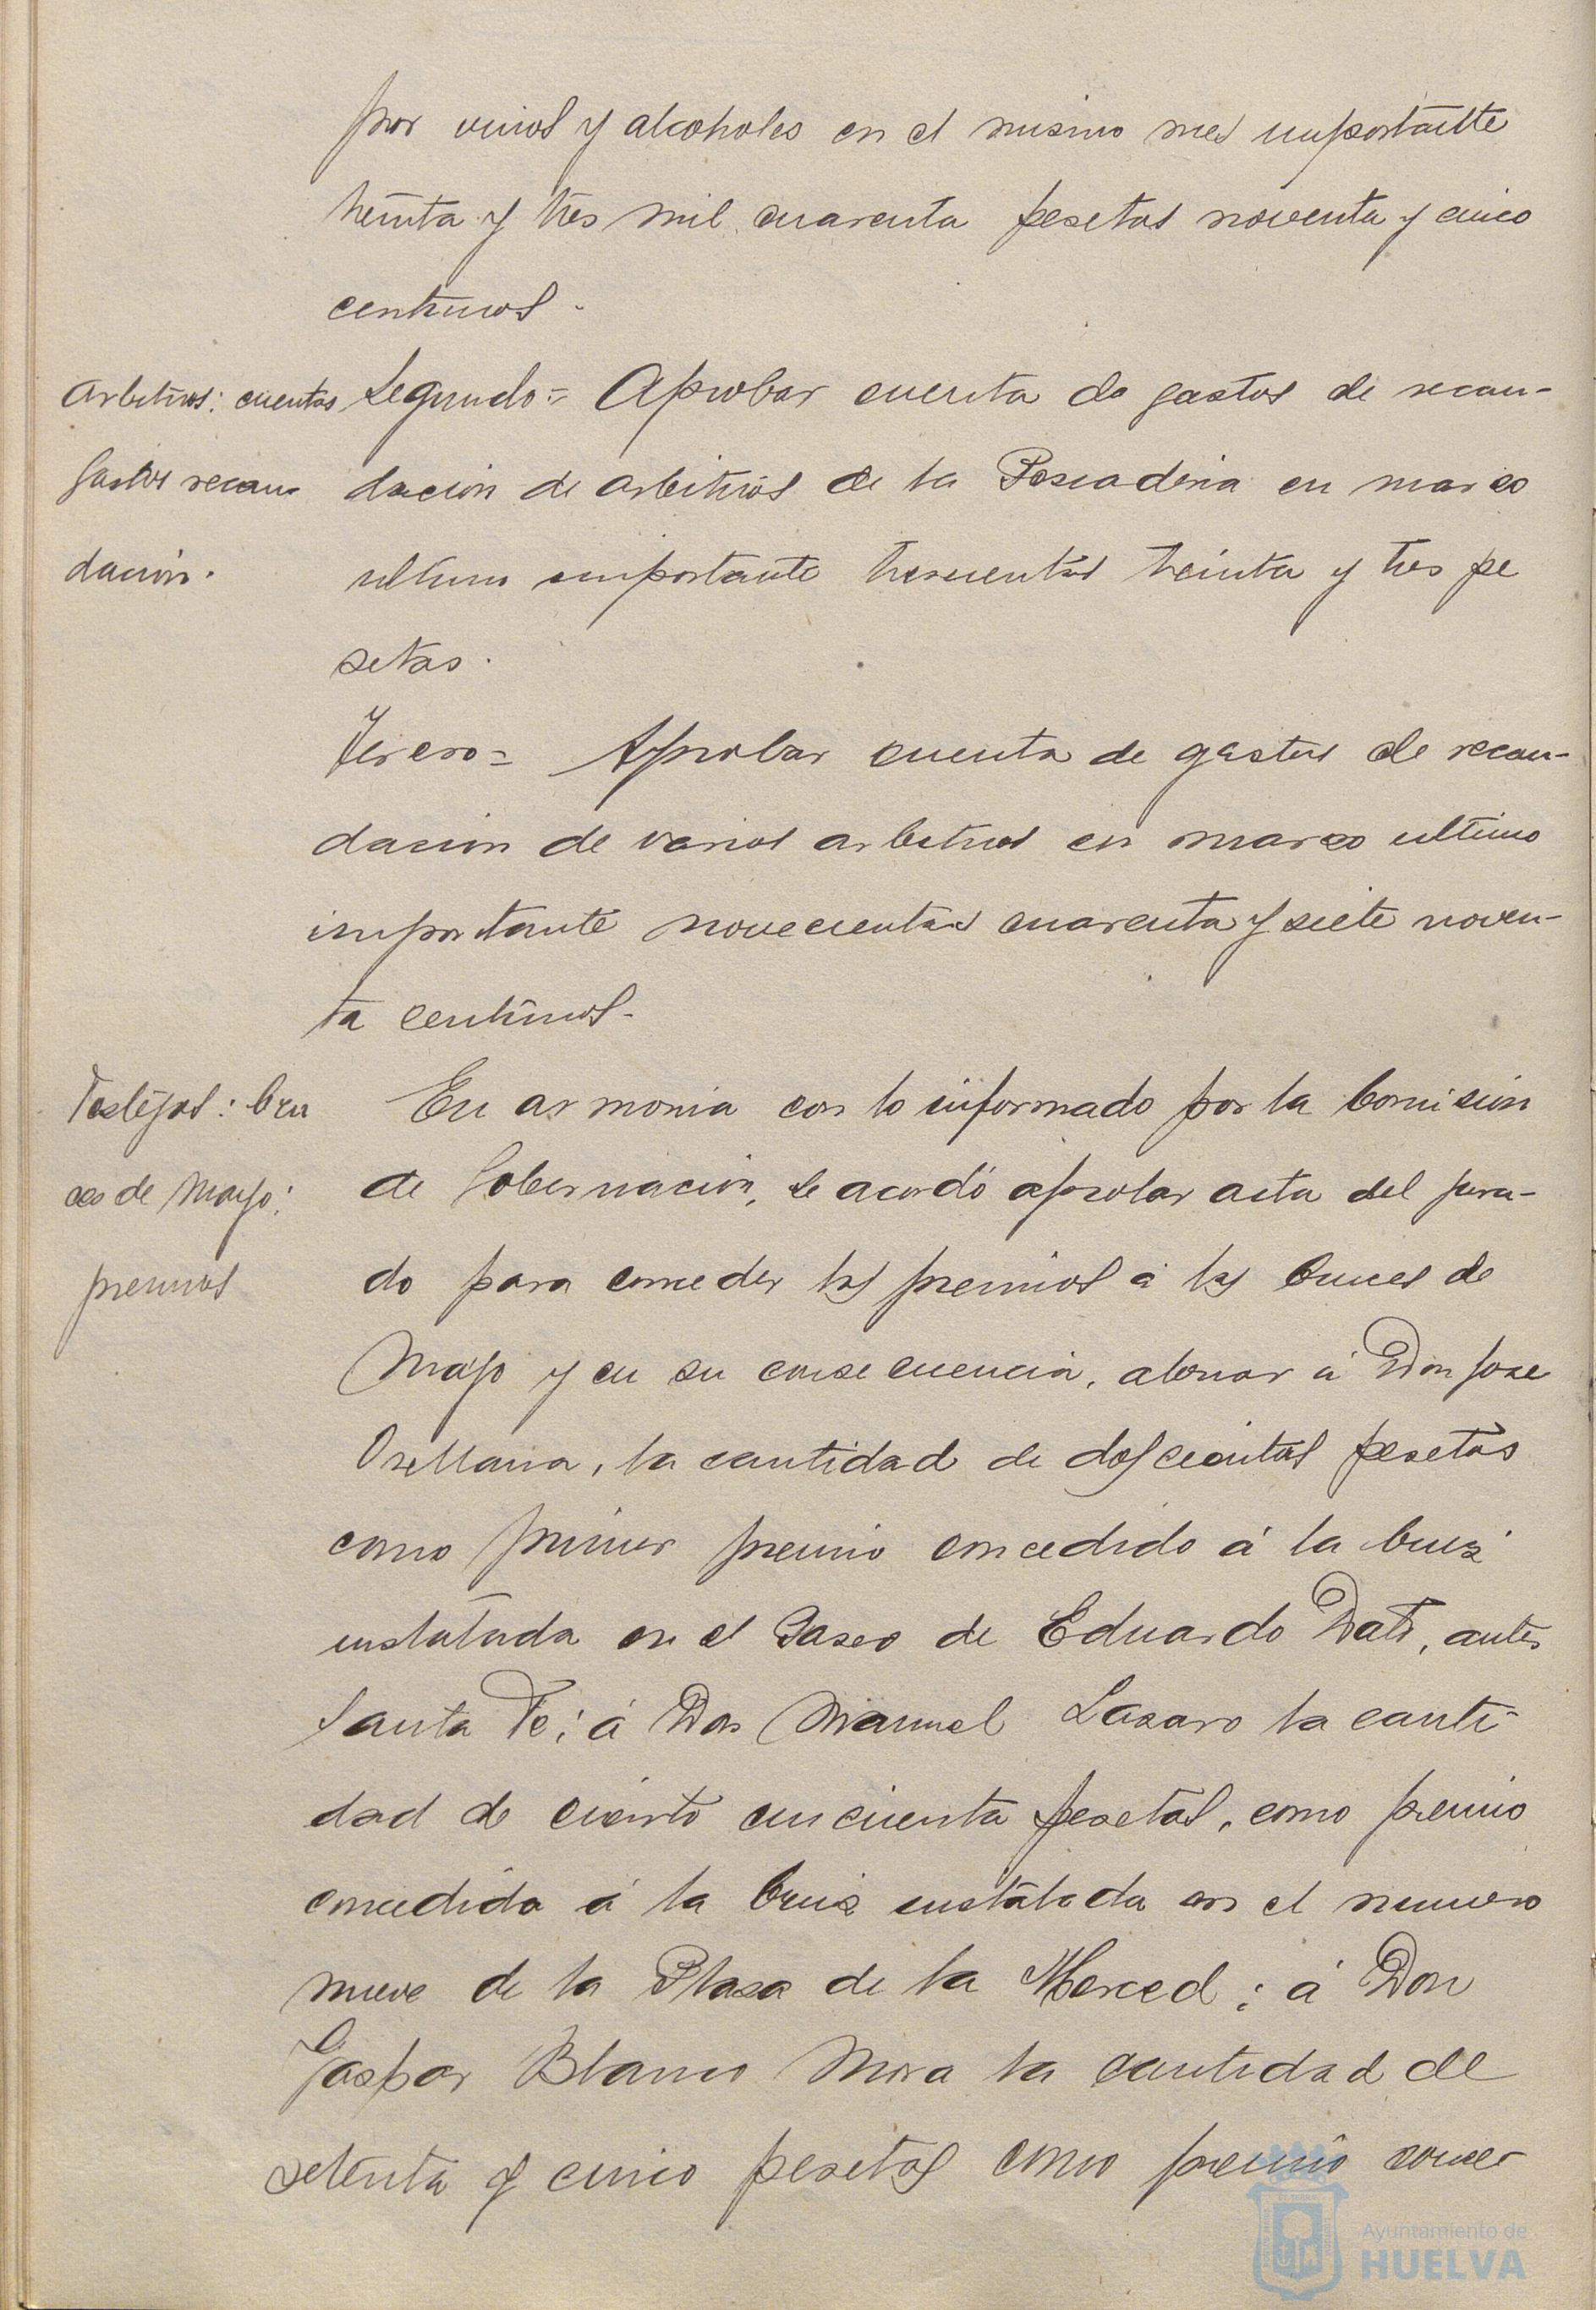 por vinos y alcoholes en el mismo mes importante
treinta y tres mil cuarenta pesetas noventa y cinco
centimos.
Arbitrios: cuentas
gastos recau-
dación.
Segundo= Aprobar cuenta de gastos de recau-
dación de arbitrios de la Pescaderia en marzo
ultimo importante trescientas treinta y tres pe
setas.
Tercero= Aprobar cuenta de gastos de recau-
dacion de varios arbitrios en marzo ultimo
importante novecientas cuarenta y siete noven-
ta centimos.
Festejos: Cru
ces de Mayo:
premios
En armonia con lo informado por la Comision
de Gobernación, se acordó aprobar acta del jura-
do para conceder los premios á las Cruces de
Mayo y en su consecuencia, abonar á Don Jose
Orellana, la cantidad de doscientas pesetas
como primer premio concedido á la Cruz
instalada en el Paseo de Eduardo Dato, antes
Santa Fe; á Don Manuel Lazaro la canti-
dad de ciento cincuenta pesetas, como premio
concedido á la Cruz instalada en el numero
nueve de la Plaza de la Merced; á Don
Gaspar Blanco Mora la cantidad de
setenta y cinco pesetas como premio conce-
Ayuntamiento de
HUELVA